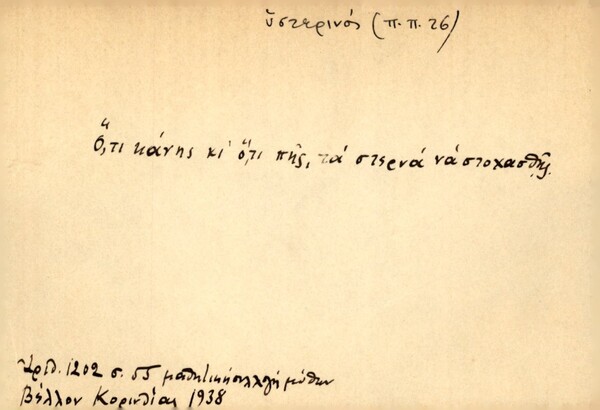 ὑστερινός (π.π. 26)
Ὅ,τι κάνῃς κι' ὅ,τι πῇς, τά στερνά νά στοχασθῇς.
Ἀριθ. 1202 σ. 55 μαθητική συλλογή μύθων
Βέλλου Κορινθίας 1938